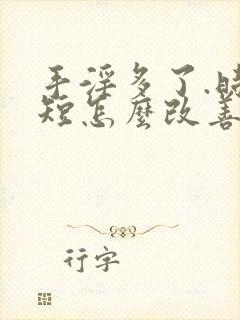 手淫多了.時
短怎麼改善
行字